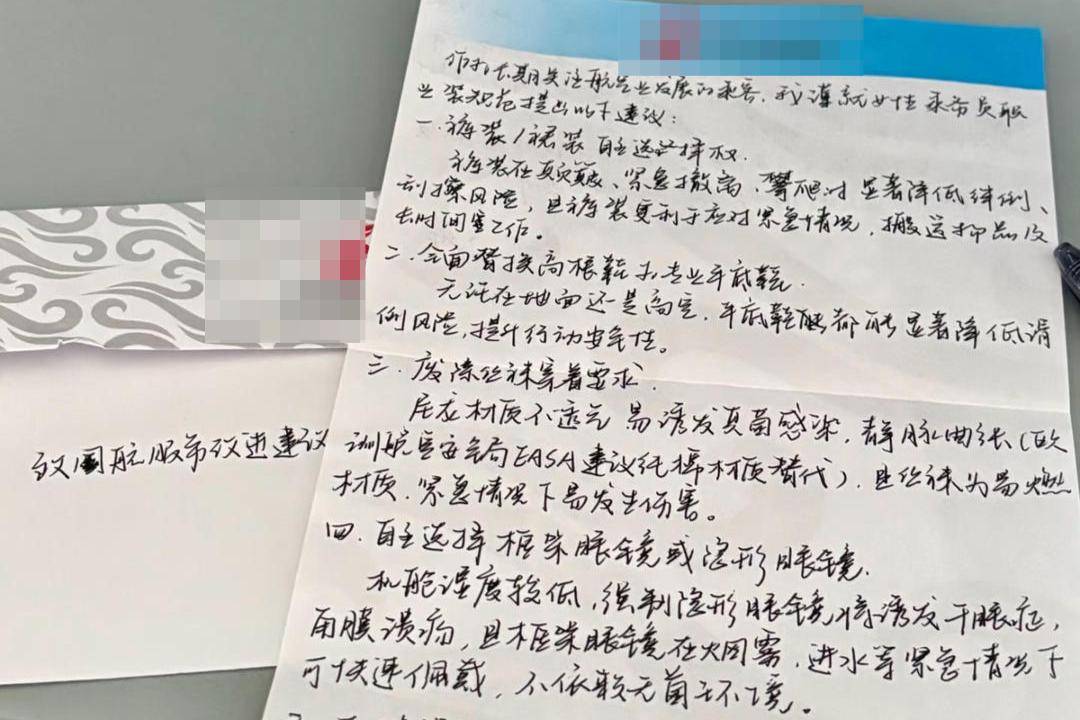 作为长期关注航空业发展的乘客，我谨就女性乘务员职
业装规范提出以下建议：
一．裤装/裙装自主选择权．
裤装在颠簸、紧急撤离、攀爬时显著降低绊倒、
刮擦风险，且裤装更利于应对紧急情况，搬运物品及
长时间工作。
二．全面替换高根鞋为专业平底鞋．
无论在地面还是高空，平底鞋都能显著降低滑
倒风险，提升行动安全性。
三．废除丝袜穿着要求．
尼龙材质不透气易诱发真菌感染，静脉曲张（欧
洲航空安全局EASA建议纯棉材质替代），且丝袜为易燃
材质．紧急情况下易发生伤害。
四．自主选择框架眼镜或隐形眼镜．
机舱湿度较低，强制隐形眼镜将诱发干眼症，
角膜溃疡，且框架眼镜在火图雾，进水等紧急情况下
可快速佩戴，不依赖无菌环境。
致国航服饰改进建议